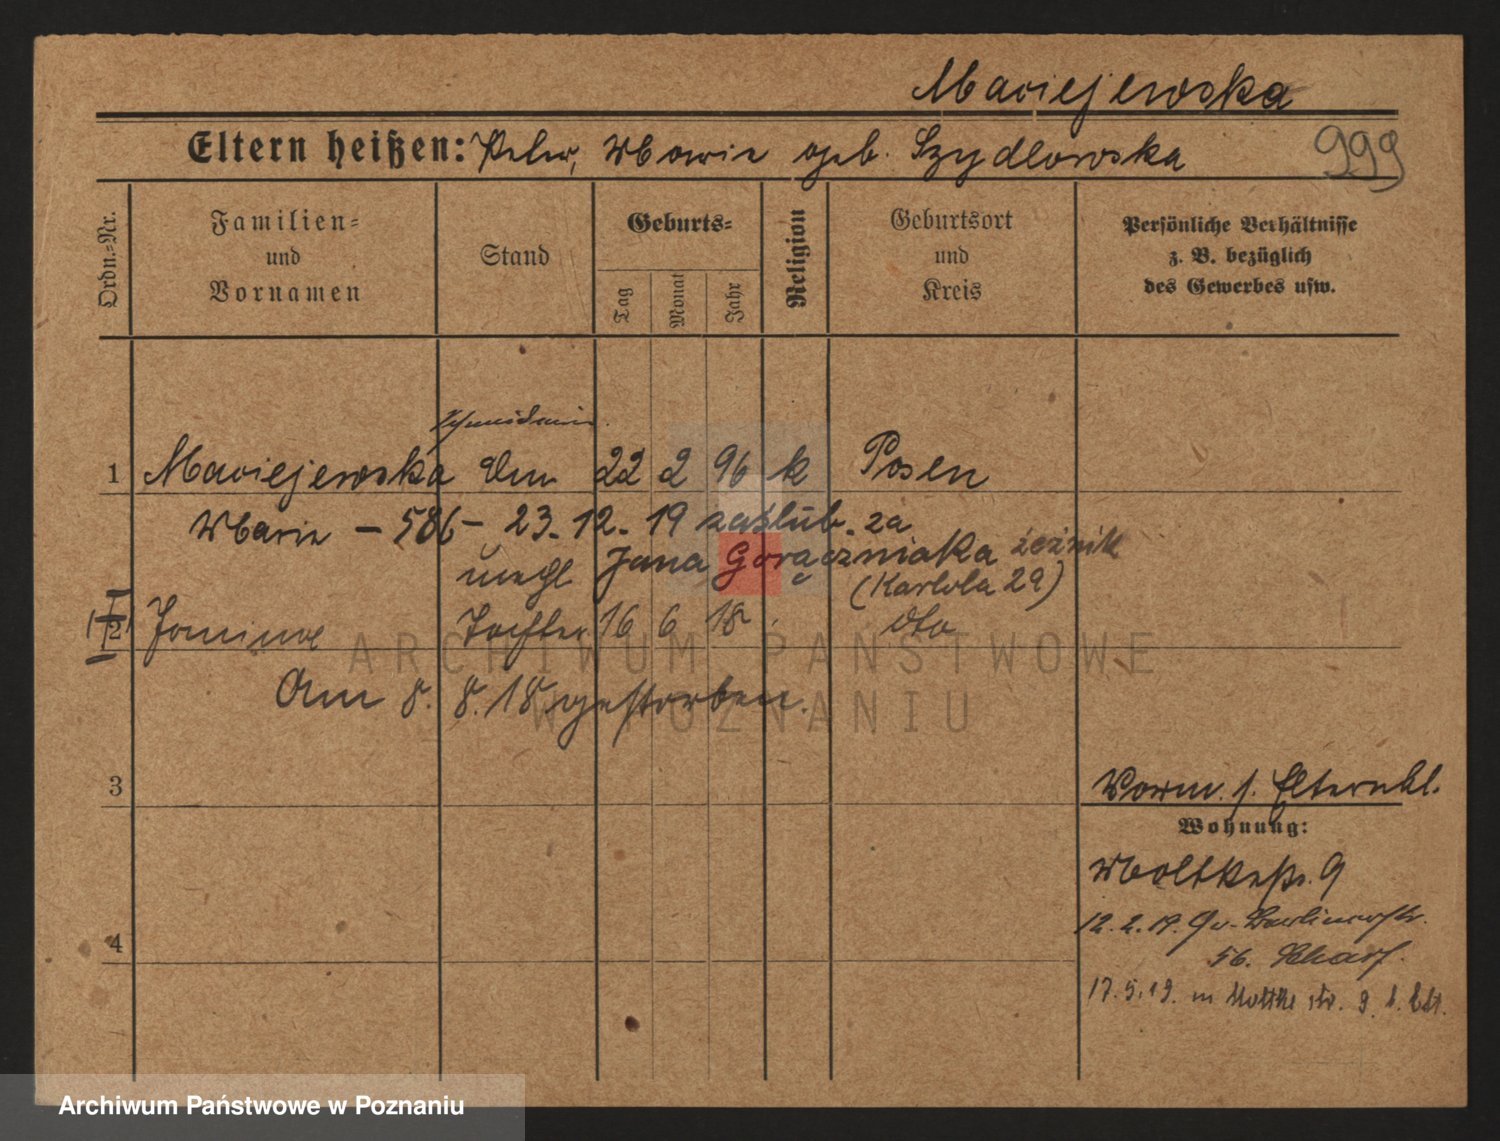 Maciejewska
Eltern heißen: Peter, Marie geb. Szydlowska 999
Ordn.-Nr.
Familien-
und
Vornamen
Stand
Geburts-
Tag
Monat
Jahr
Religion
Geburtsort
und
Kreis
Persönliche Verhältnisse
z. B. bezüglich
des Gewerbes usw.
Schneiderin
1 Maciejewska 22 2 96 k Posen
Marie – 586 – 23.12.19 zaślub. za
unehl Jana Gorączniaka rzeźnik
(Karlola 29)
2 Janina Tochter 16 6 18 dto
Am 8. 8. 18 gestorben.
3
Vorm. s. Elternbl.
Wohnung:
Moltkestr. 9
4
12. 2. 19. Gr. Berlinerstr.
56. Scharf.
17.5.19. Moltke str. 9 b. Elt.
ARCHIWUM PAŃSTWOWE
W POZNANIU
Archiwum Państwowe w Poznaniu